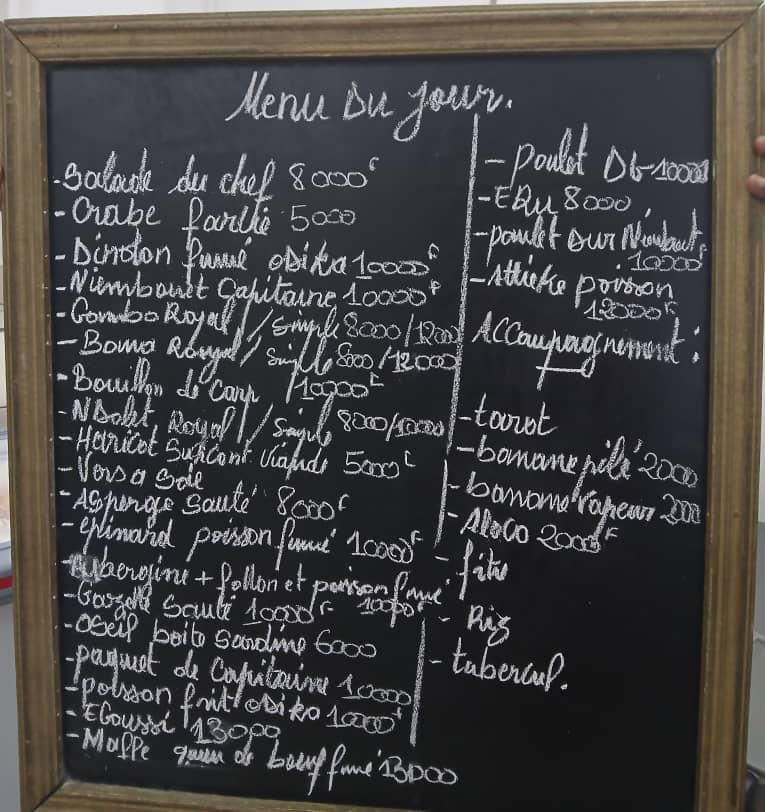 Menu Du jour.
- Salade du chef 8000F
- Crabe farcie 5000
- Dindon fumé odika 10000F
- Niembouet Capitaine 10000F
- Gombo Royal // Simple 8000/12000
- Boma Royal // Simple 8000/12000
- Bouillon de Carp /10000F
- NDolet Royal // Simple 8000/10000
- Haricot Viande 5000F
- Asperge sauté 8000F
- épinard poisson fumé 10000F
- Aubergine + follon et poisson fumé
10000F
- Gazelle sauté 10000F
- Oseil boite Sardine 6000
- paquet de Capitaine 10000
- poisson frit odika 10000F
- Egoussi 13000
- Maffe de boeuf fumé 13000
- poulet DG 10000
- ERU 8000
- poulet sur Niembouet
10000F
- Attieke poisson
12000F
ACCompagnement :
- tarot
- banane pilé 2000
- banane vapeur 2000
- Aloco 2000F
- frite
- Riz
- tubercul.